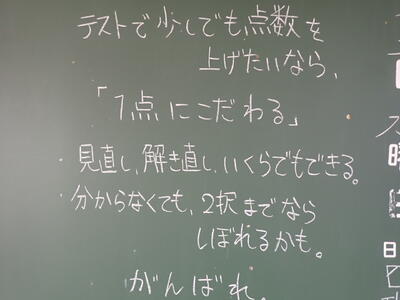 テストで少しでも点数を
上げたいなら、
「1点にこだわる」
・見直し、解き直し、いくらでもできる。
・分からなくても、2択までなら
しぼれるかも。
がんばれ。
日